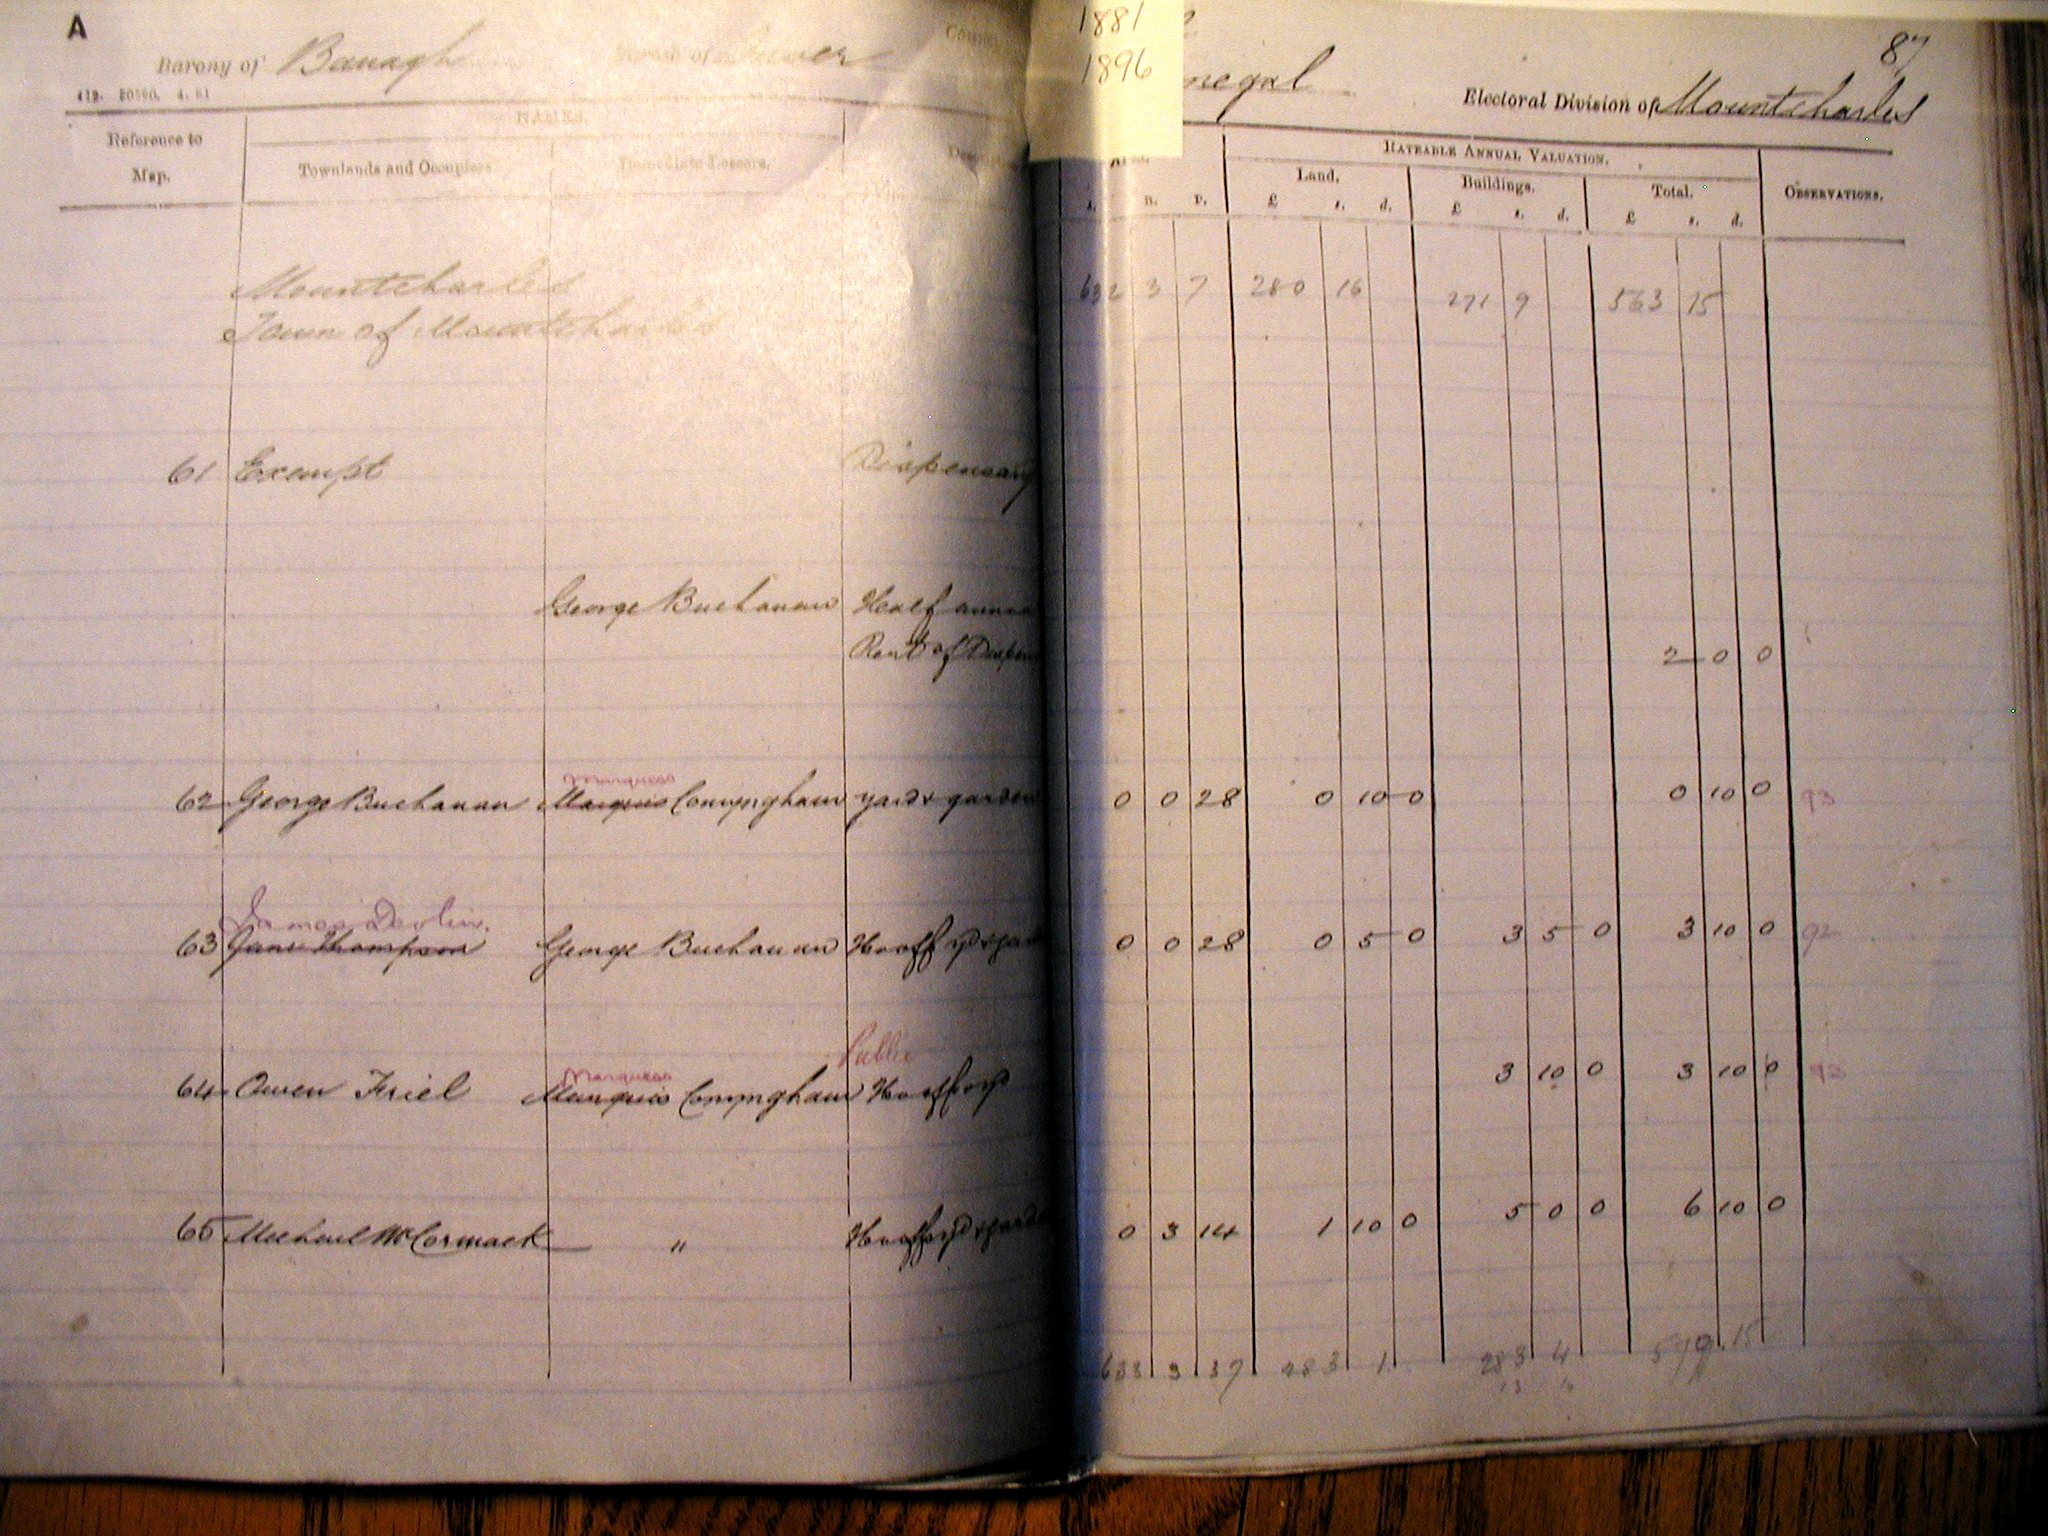 A
1881
1896
87
Barony of Banagh
Parish of Inver
negal
Electoral Division of Mountcharles
NAMES.
RATEABLE ANNUAL VALUATION.
Reference to Map.
Townlands and Occupiers
Immediate Lessors.
A. R. P.
Land. £ s. d.
Buildings. £ s. d.
Total. £ s. d.
OBSERVATIONS.
Mountcharles 632 3 7 280 16 271 9 563 15
Town of Mountcharles
61 Exempt Dispensary
George Buchanan Half
Rent of 2 0 0
Marquess
62 George Buchanan Marquis Conyngham yard & garden 0 0 28 0 10 0 0 10 0 93
James Devlin.
63 Jane Thompson George Buchanan 0 0 28 0 5 0 3 5 0 3 10 0 92
Public
Marquess
64 Owen Friel Marquis Conyngham 3 10 0 3 10 0 93
65 Michael McCormack " 0 3 14 1 10 0 5 0 0 6 10 0
633 3 37 283 1 283 4 15